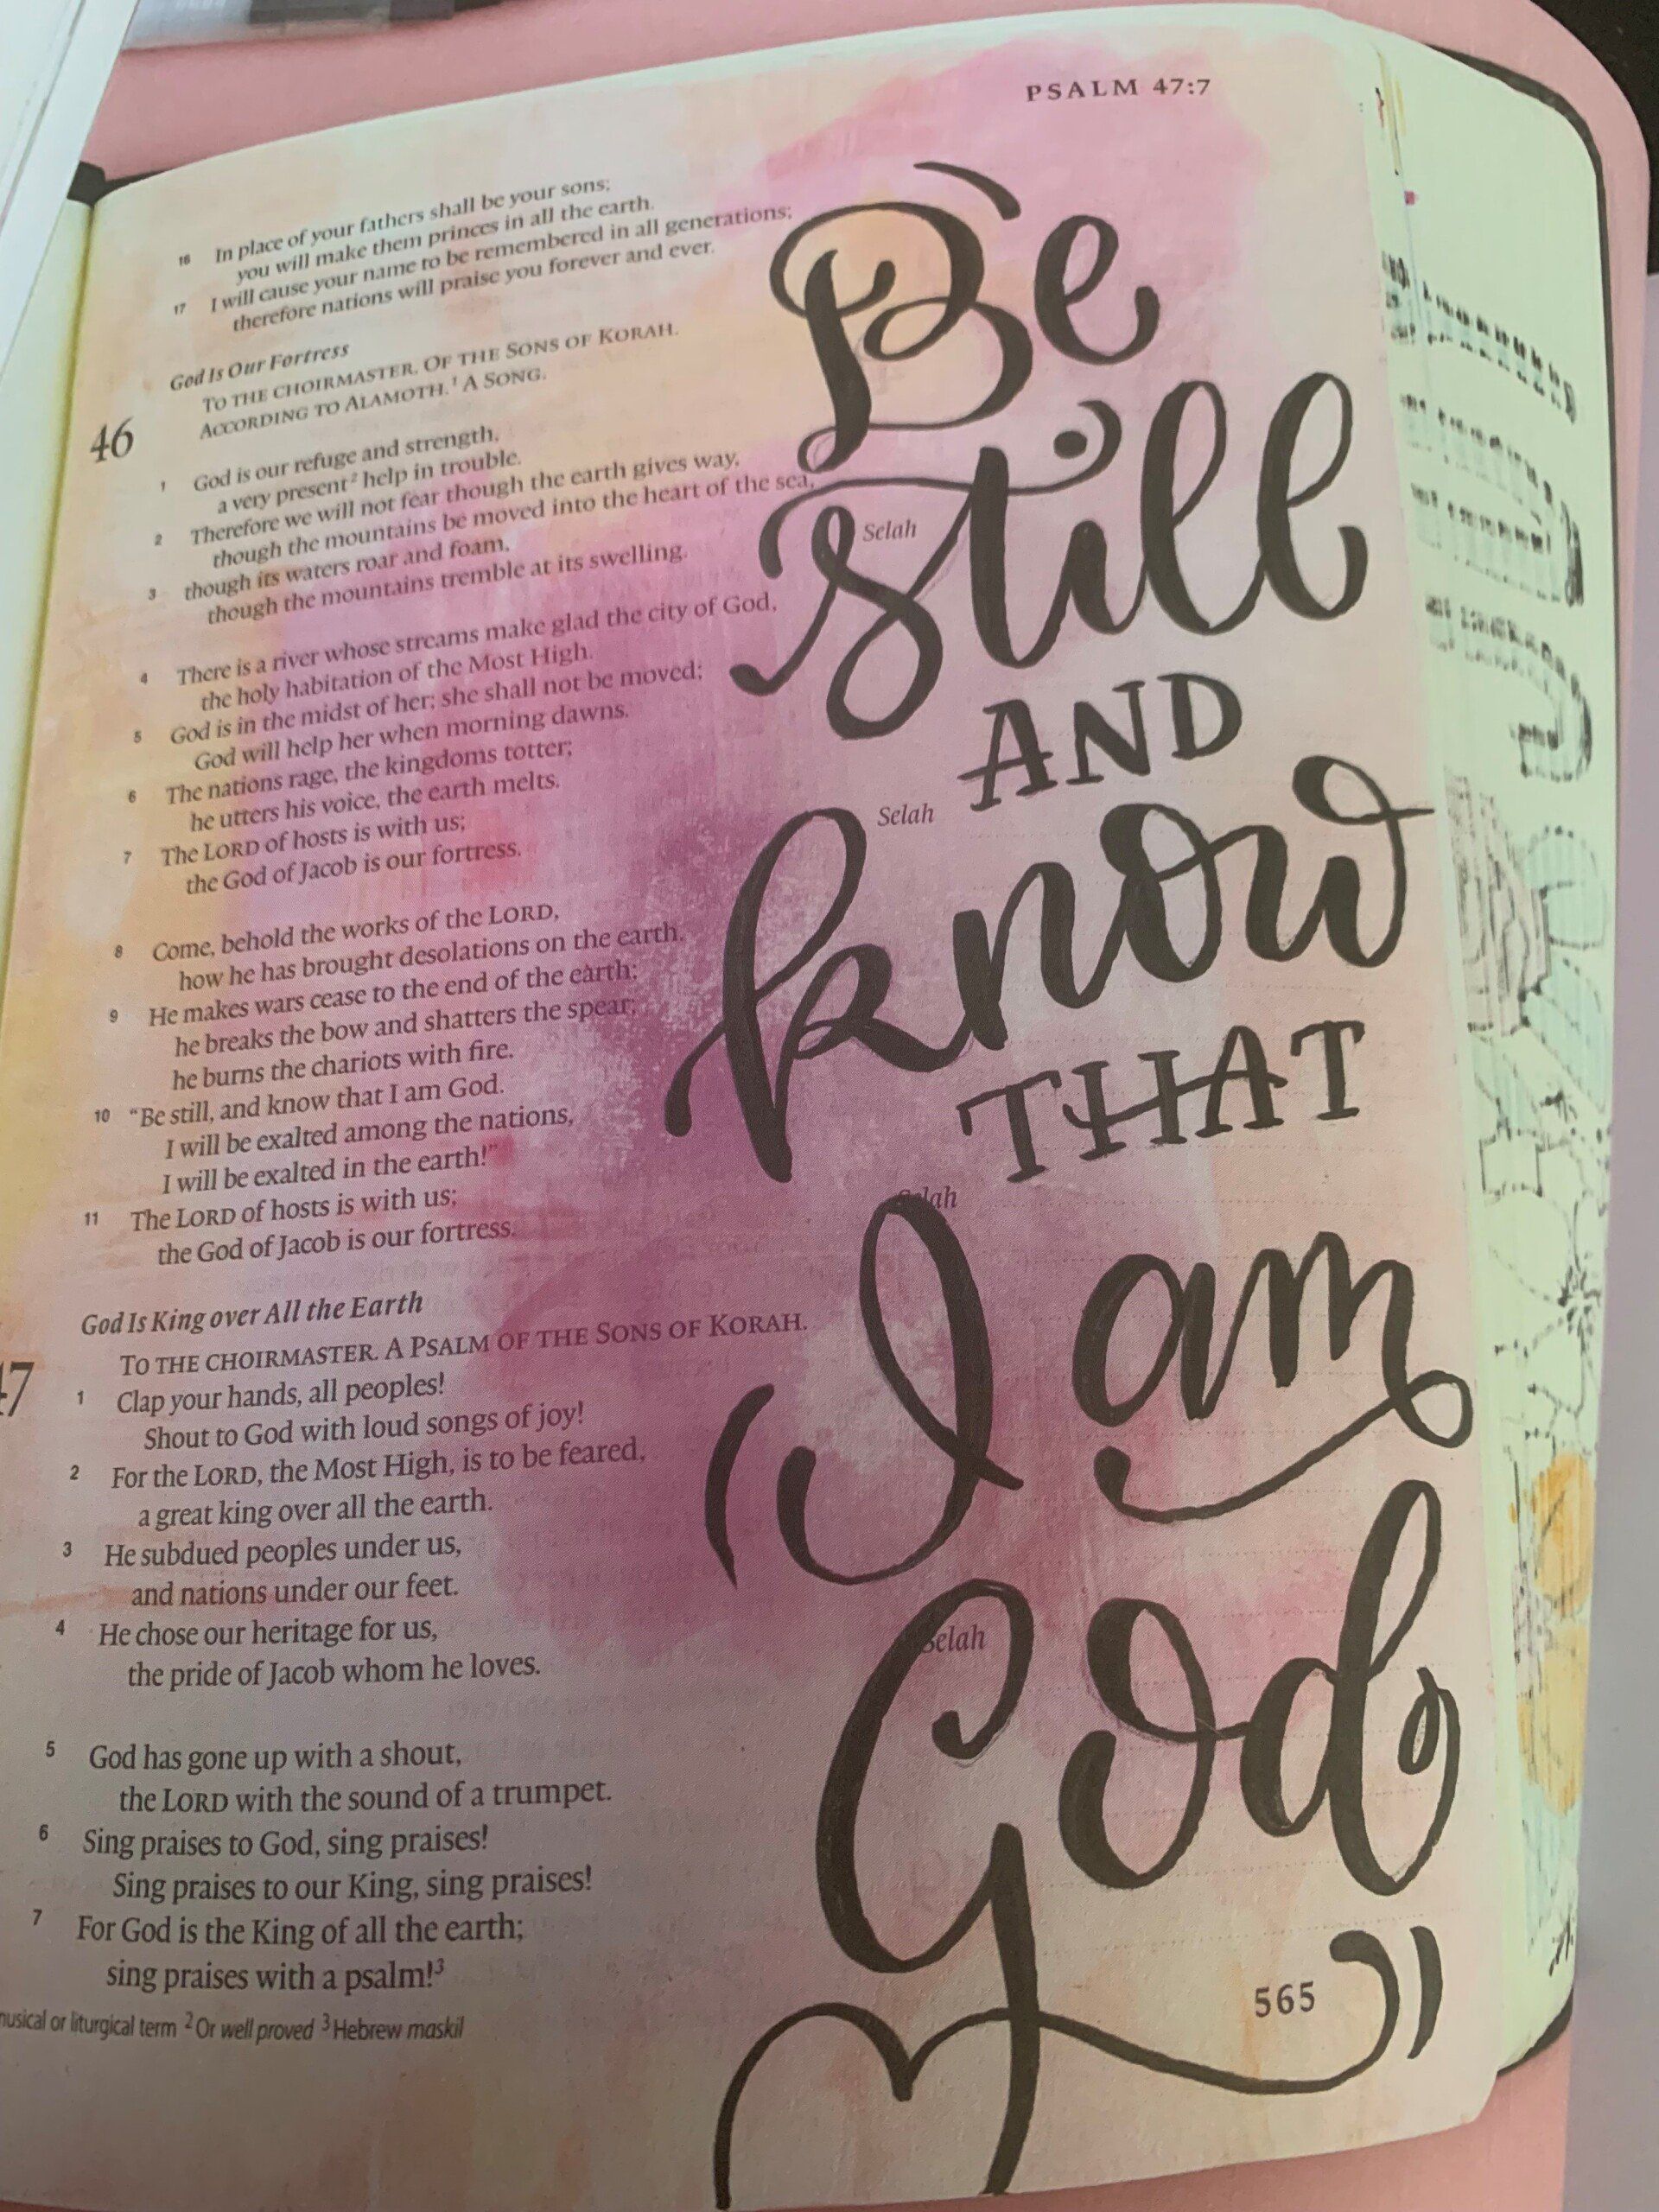 PSALM 47:7
16 In place of your fathers shall be your sons;
you will make them princes in all the earth.
17 I will cause your name to be remembered in all generations;
therefore nations will praise you forever and ever.
God Is Our Fortress
TO THE CHOIRMASTER. OF THE SONS OF KORAH.
ACCORDING TO ALAMOTH.1 A SONG.
46
1 God is our refuge and strength,
a very present2 help in trouble.
2 Therefore we will not fear though the earth gives way,
though the mountains be moved into the heart of the sea,
3 though its waters roar and foam,
though the mountains tremble at its swelling.
Selah
4 There is a river whose streams make glad the city of God,
the holy habitation of the Most High.
5 God is in the midst of her; she shall not be moved;
God will help her when morning dawns.
6 The nations rage, the kingdoms totter;
he utters his voice, the earth melts.
7 The LORD of hosts is with us;
the God of Jacob is our fortress.
Selah
8 Come, behold the works of the LORD,
how he has brought desolations on the earth.
9 He makes wars cease to the end of the earth;
he breaks the bow and shatters the spear;
he burns the chariots with fire.
10 “Be still, and know that I am God.
I will be exalted among the nations,
I will be exalted in the earth!”
11 The LORD of hosts is with us;
the God of Jacob is our fortress.
Selah
God Is King over All the Earth
TO THE CHOIRMASTER. A PSALM OF THE SONS OF KORAH.
47
1 Clap your hands, all peoples!
Shout to God with loud songs of joy!
2 For the LORD, the Most High, is to be feared,
a great king over all the earth.
3 He subdued peoples under us,
and nations under our feet.
4 He chose our heritage for us,
the pride of Jacob whom he loves.
Selah
5 God has gone up with a shout,
the LORD with the sound of a trumpet.
6 Sing praises to God, sing praises!
Sing praises to our King, sing praises!
7 For God is the King of all the earth;
sing praises with a psalm!3
musical or liturgical term 2 Or well proved 3 Hebrew maskil
Be
still
AND
know
THAT
I am
God
565